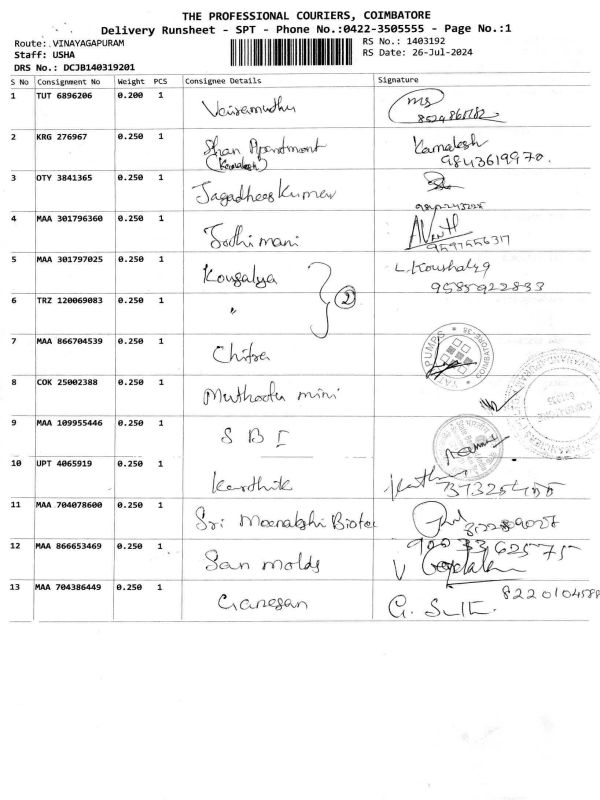 THE PROFESSIONAL COURIERS, COIMBATORE
Delivery Runsheet - SPT - Phone No.:0422-3505555 - Page No.:1
Route: VINAYAGAPURAM
RS No.: 1403192
Staff: USHA
RS Date: 26-Jul-2024
DRS No.: DCJB140319201
S No Consignment No Weight PCS Consignee Details Signature
1 TUT 6896206 0.200 1 Vairamuthu
2 KRG 276967 0.250 1 Shan Apartment Kamalesh
(Kamalesh) 9843619970.
3 OTY 3841365 0.250 1 Jagadhees Kumar
4 MAA 301796360 0.250 1 Jothi mani
9597556317
5 MAA 301797025 0.250 1 Kousalya L. Koushalya
9585922833
6 TRZ 120069083 0.250 1 " 2
7 MAA 866704539 0.250 1 Chitra
YATI PUMPS * COIMBATORE-35 *
8 COK 25002388 0.250 1 Muthootu mini
9 MAA 109955446 0.250 1 S B I
10 UPT 4065919 0.250 1 Karthik
11 MAA 704078600 0.250 1 Sri Meenakshi Biotec
12 MAA 866653469 0.250 1 San molds 9003362575
13 MAA 704386449 0.250 1 Ganesan 8220104588